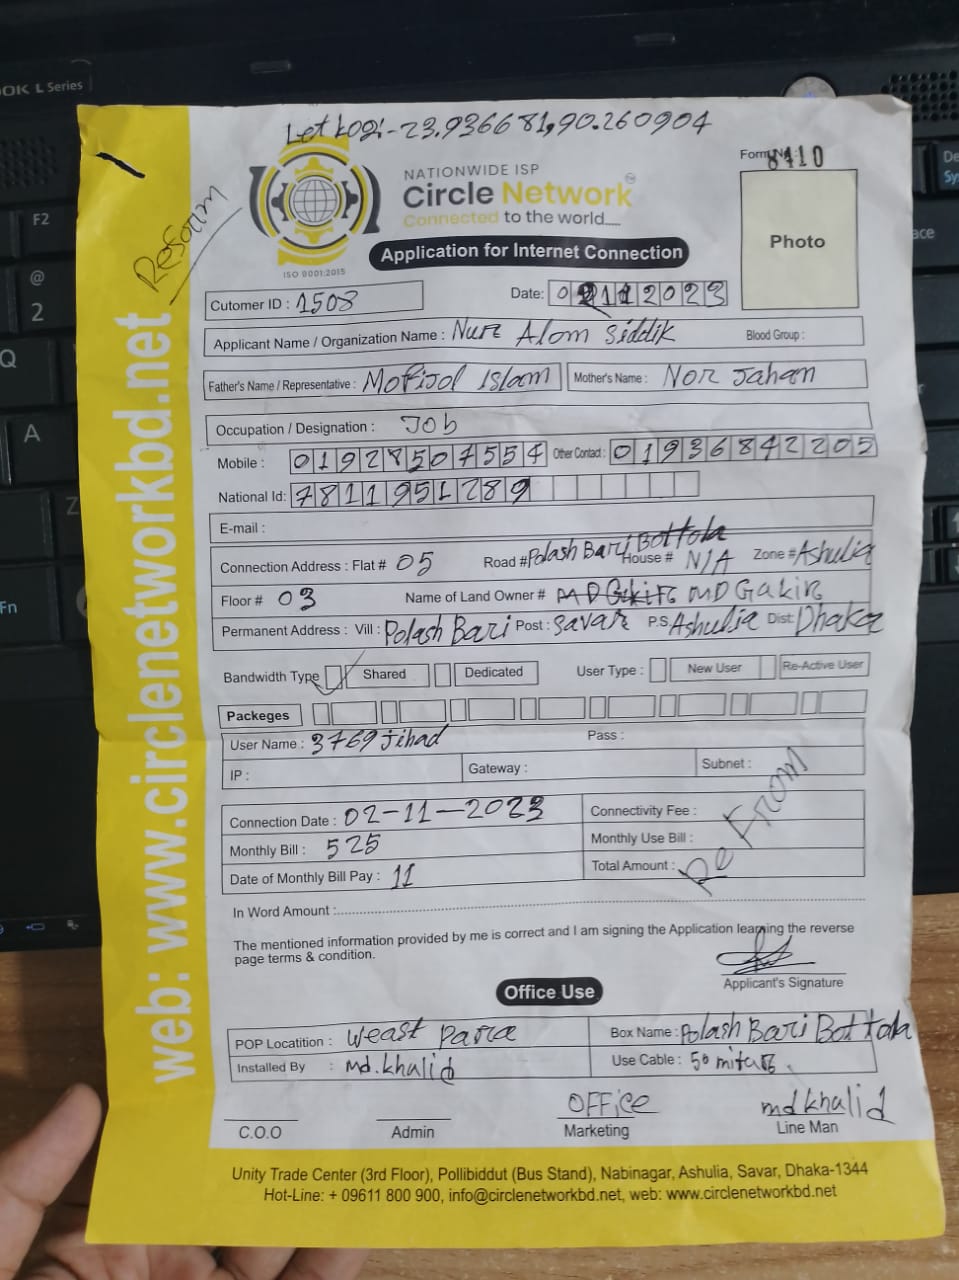 Let Log:-23.936681,90.260904
OK L Series
Form No: 8410
NATIONWIDE ISP
Circle Network
Connected to the world.....
ISO 9001:2015
Application for Internet Connection
Photo
Reform
Cutomer ID : 1508
Date: 02112023
Applicant Name / Organization Name : Nure Alom Siddik Blood Group :
Father's Name / Representative : Mofijol Islam Mother's Name : Nor Jahan
Occupation / Designation : JOb
Mobile : 01928507554 Other Contact : 01936842205
National Id: 7811951289
E-mail :
Connection Address : Flat # 05 Road # Polash Bari Bottola House # N/A Zone # Ashulia
Floor # 03 Name of Land Owner # MD Gakir
Permanent Address : Vill : Polash Bari Post : Savar P.S. Ashulia Dist: Dhaka
Bandwidth Type Shared Dedicated User Type : New User Re-Active User
Packeges
User Name : 3769 Jihad Pass :
IP : Gateway : Subnet :
Connection Date : 02-11-2023 Connectivity Fee :
Monthly Bill : 525 Monthly Use Bill :
Date of Monthly Bill Pay : 11 Total Amount :
Re From
In Word Amount :
The mentioned information provided by me is correct and I am signing the Application learning the reverse
page terms & condition.
Applicant's Signature
Office Use
POP Locatition : Weast Para Box Name : Polash Bari Bottola
Installed By : Md.khalid Use Cable : 50 mitar
OFFice md khalid
C.O.O Admin Marketing Line Man
Unity Trade Center (3rd Floor), Pollibiddut (Bus Stand), Nabinagar, Ashulia, Savar, Dhaka-1344
Hot-Line: + 09611 800 900, info@circlenetworkbd.net, web: www.circlenetworkbd.net
web: www.circlenetworkbd.net
F2
@
2
Q
A
Z
Fn